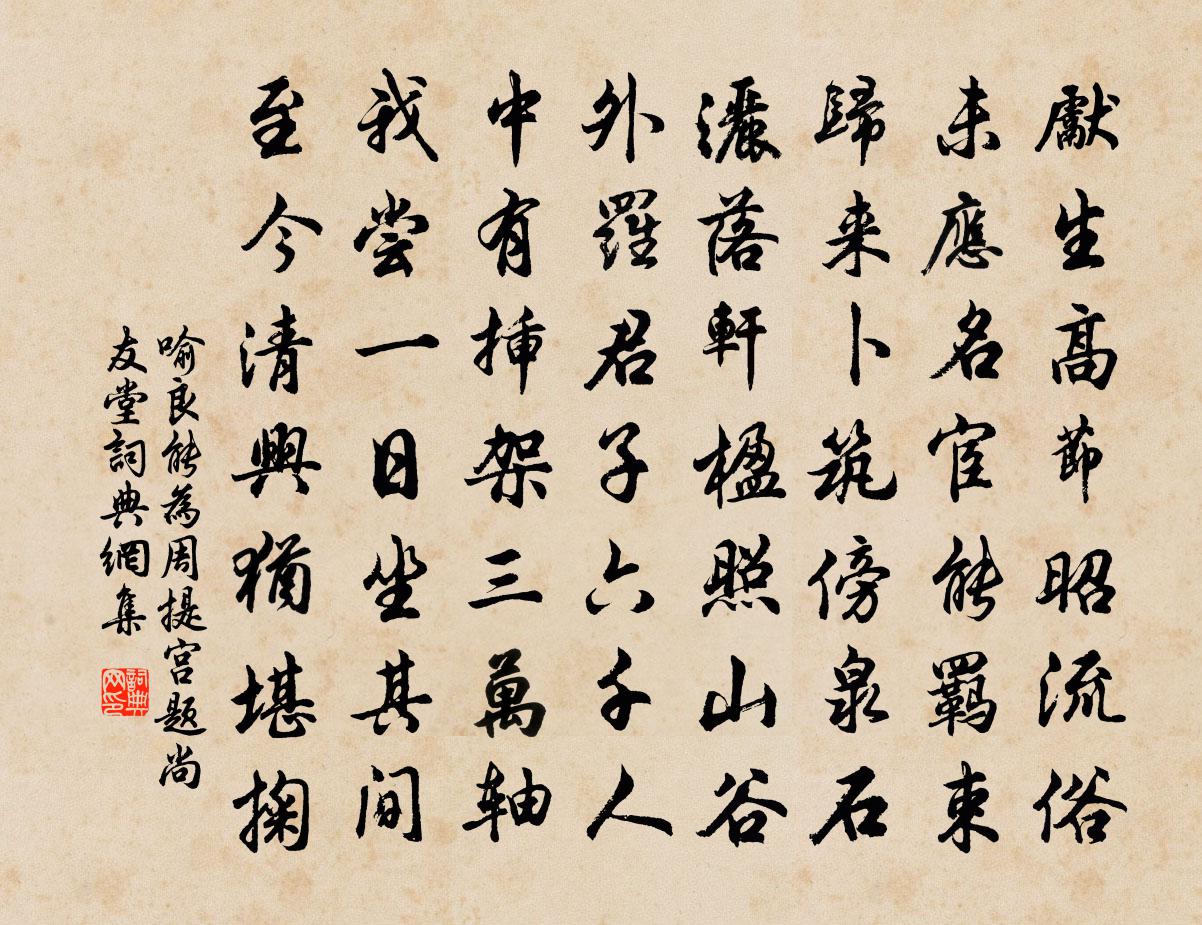 獻生高節昭流俗
未應名宦能羈束
歸来卜筑傍泉石
灑落軒楹照山谷
外羅君子六千人
中有揷架三萬軸
我尝一日坐其间
至今清興猶堪掬
喻良能為周提宫题尚
友堂詞典網集
詞典网印